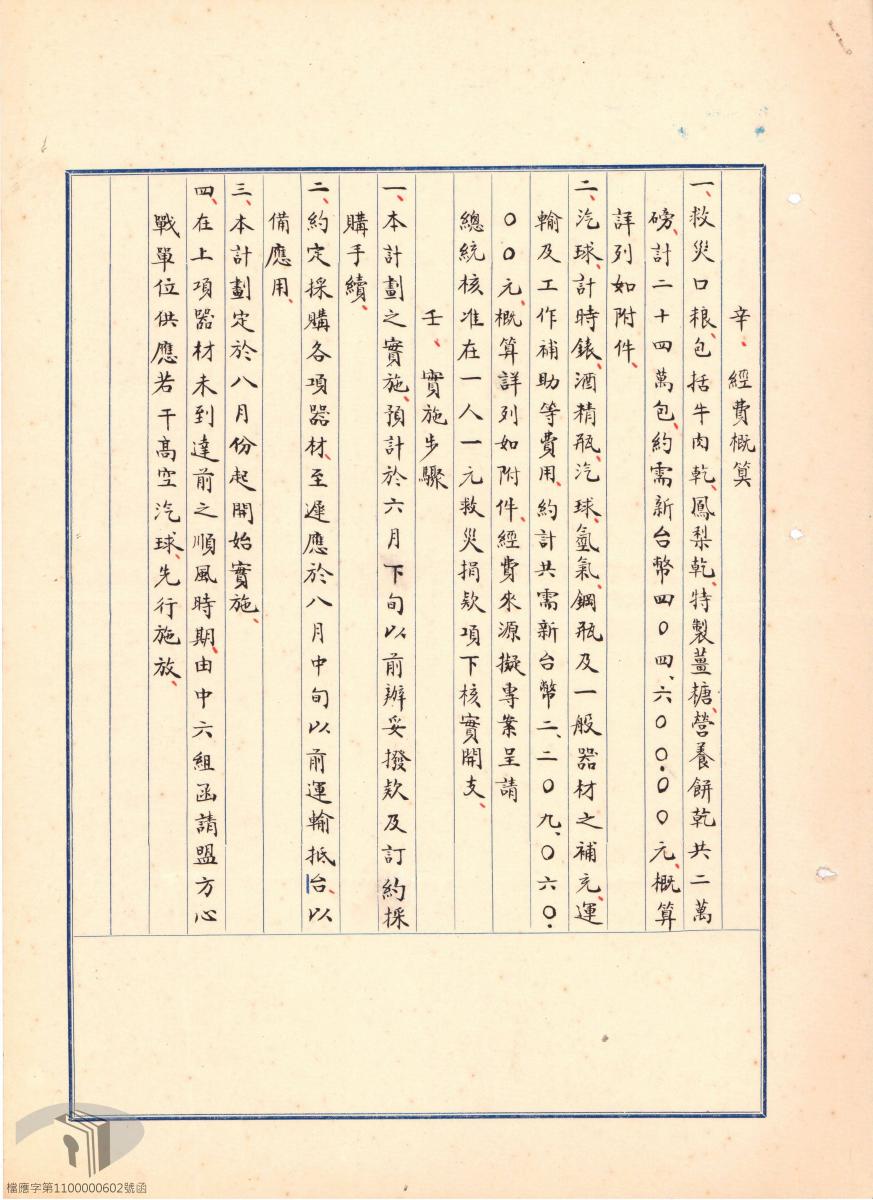 辛、經費概算
一、救災口粮、包括牛肉乾、鳳梨乾、特製薑糖、營養餅乾共二萬
磅、計二十四萬包、約需新台幣四〇四、六〇〇.〇〇元、概算
詳列如附件、
二、汽球、計時錶、酒精瓶、汽球、氫氣、鋼瓶及一般器材之補充、運
輸及工作補助等費用、約計共需新台幣二、二〇九、〇六〇.
〇〇元、概算詳列如附件、經費來源擬專案呈請
總統核准在一人一元救災捐欵項下核實開支、
壬、實施步驟
一、本計劃之實施、預計於六月下旬以前辦妥撥欵及訂約採
購手續、
二、約定採購各項器材、至遲應於八月中旬以前運輸抵台、以
備應用、
三、本計劃定於八月份起開始實施、
四、在上項器材未到達前之順風時期、由中六組函請盟方心
戰單位供應若干高空汽球、先行施放、
檔應字第1100000602號函